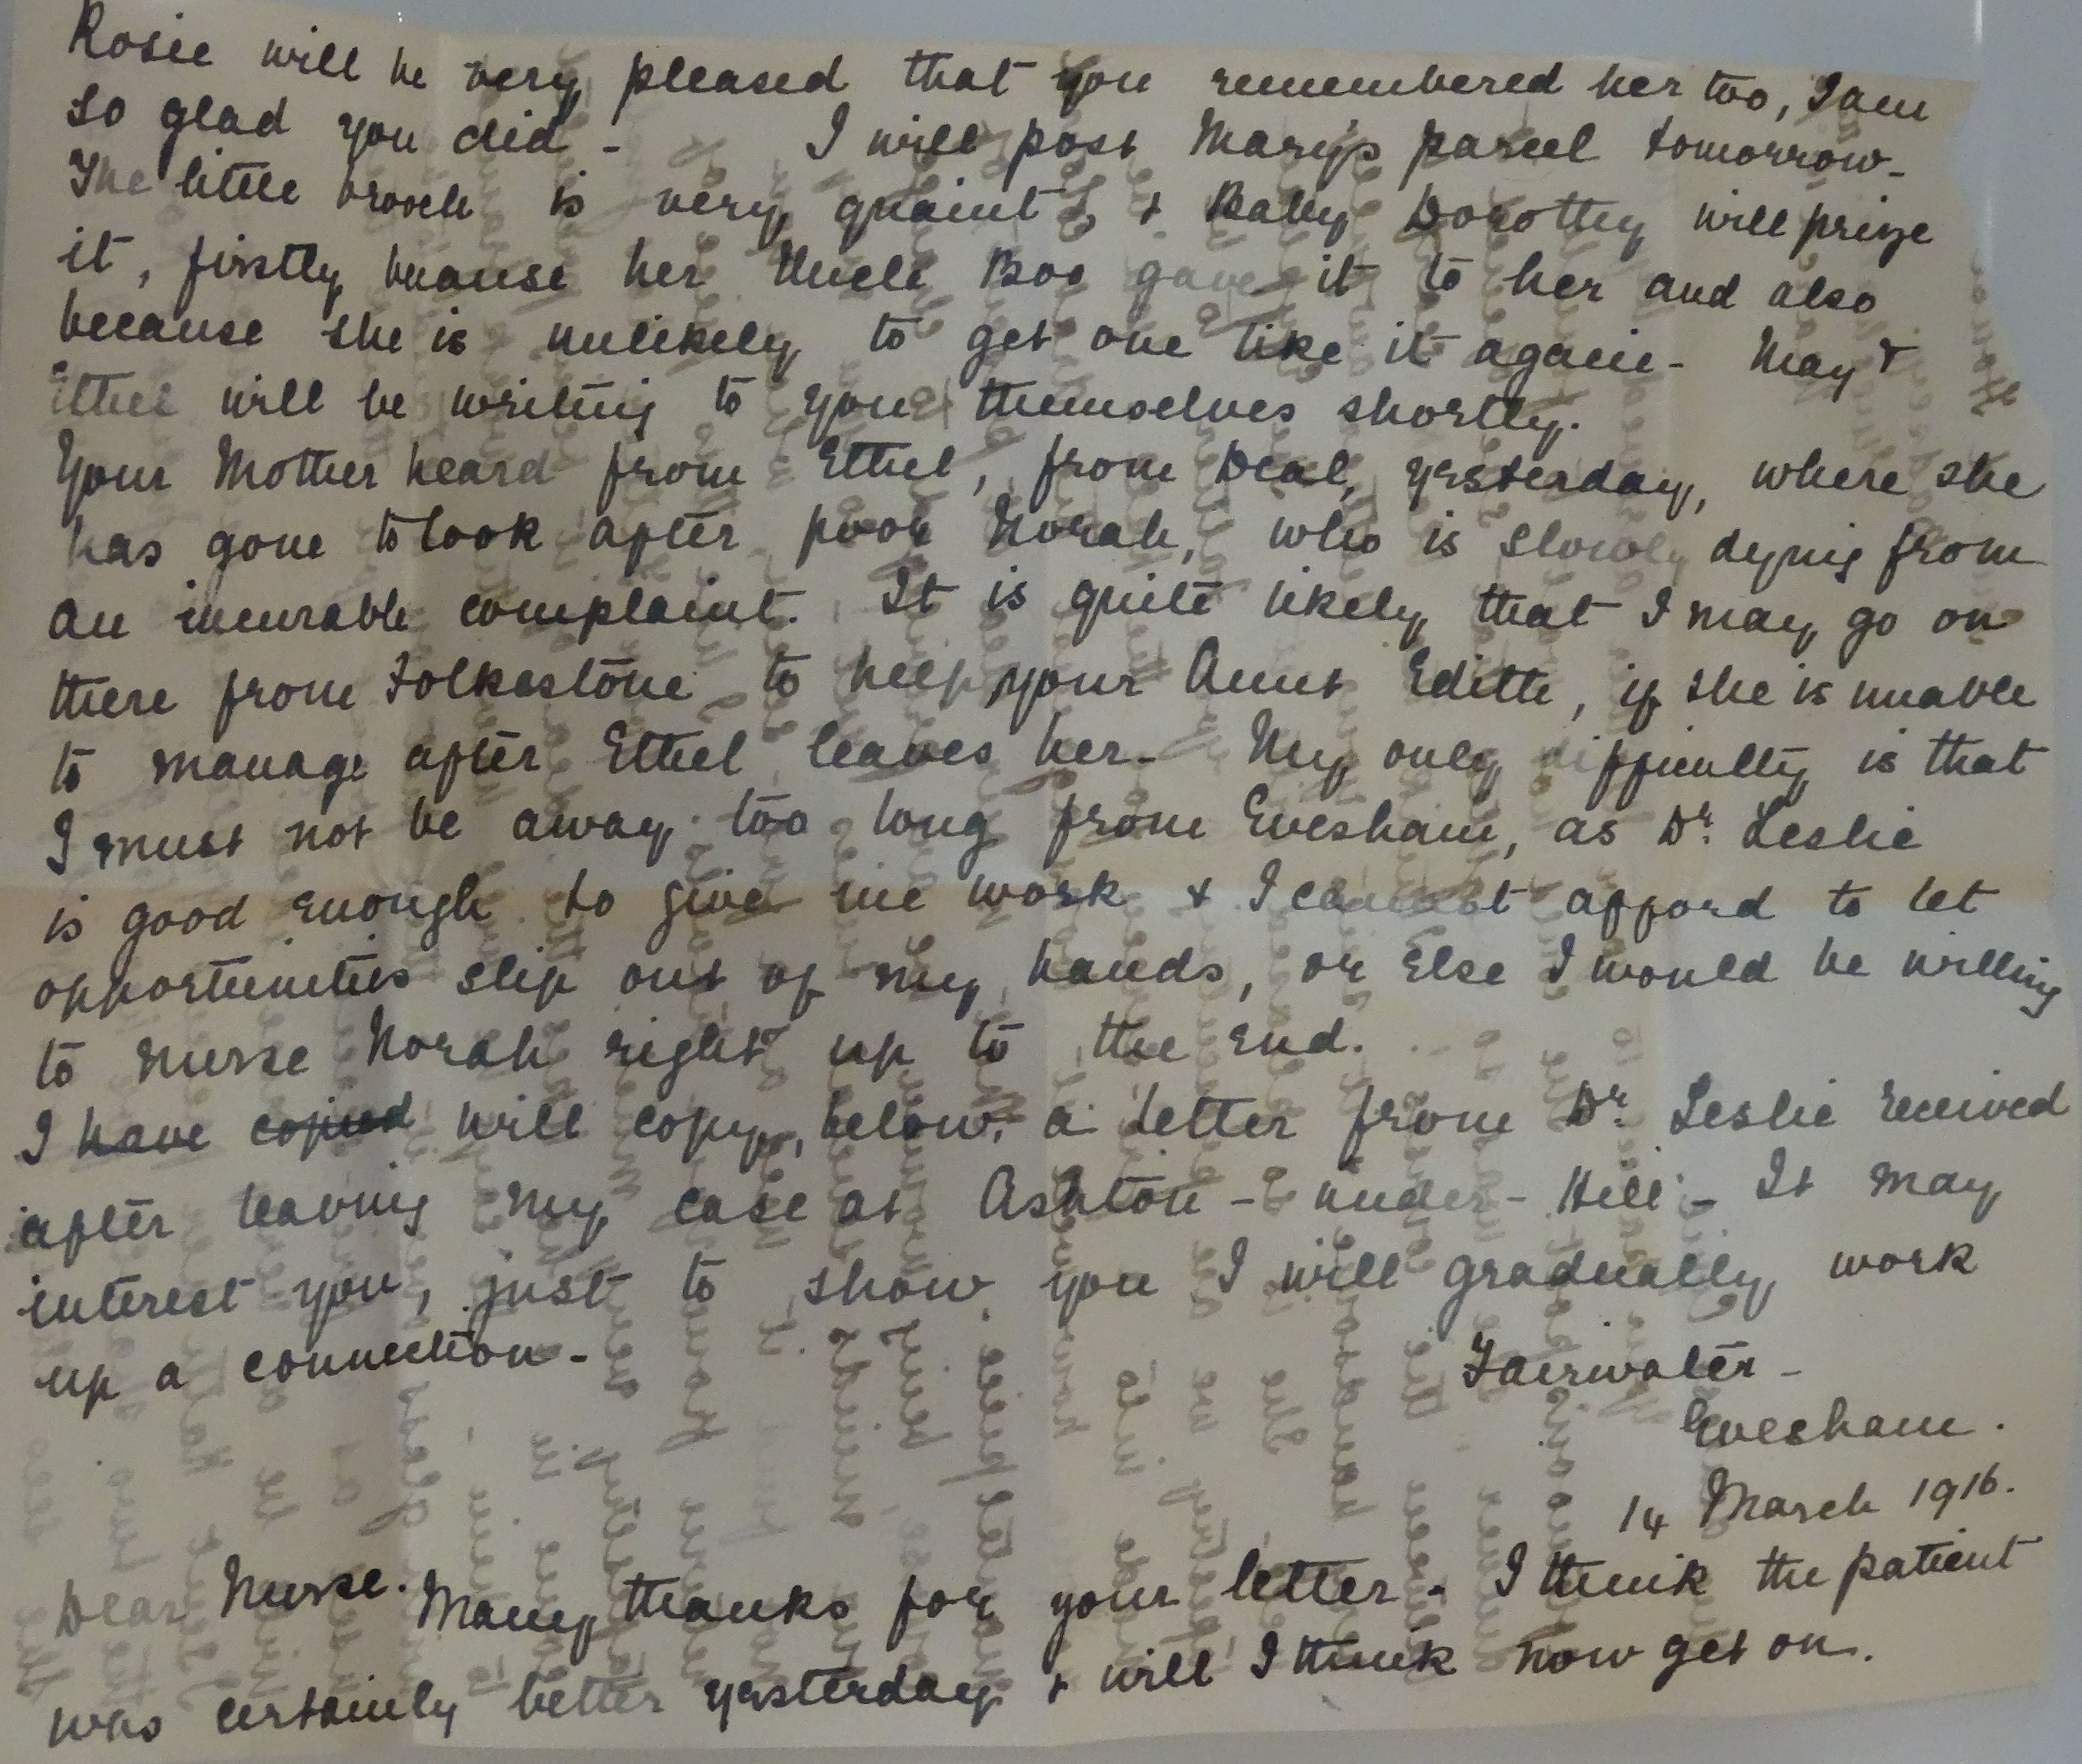 Rosie will be very pleased that you remembered her too, I am
so glad you did - I will post Mary's parcel tomorrow -
The little brooch is very quaint, & Baby Dorothy will prize
it, firstly because her Uncle Boo gave it to her and also
because she is unlikely to get one like it again - May &
Ethel will be writing to you themselves shortly.
Your Mother heard from Ethel, from Deal, yesterday, where she
has gone to look after poor Norah, who is slowly dying from
an incurable complaint. It is quite likely that I may go on
there from Folkestone to help your Aunt Edith, if she is unable
to manage after Ethel leaves her - My only difficulty is that
I must not be away too long from Evesham, as Dr. Leslie
is good enough to give me work & I cannot afford to let
opportunities slip out of my hands, or else I would be willing
to nurse Norah right up to the end.
I have copied will copy, below, a letter from Dr. Leslie received
after leaving my case at Ashton - under - Hill - It may
interest you, just to show you I will gradually work
up a connection -
Fairwater -
Evesham.
14 March 1916.
Dear Nurse. Many thanks for your letter - I think the patient
was certainly better yesterday & will I think now get on.